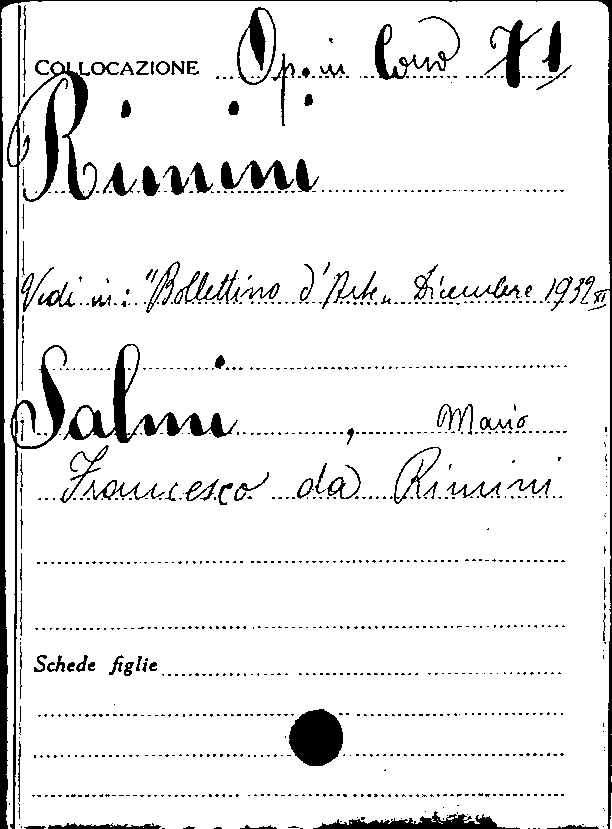 COLLOCAZIONE Op. in Corso 71
Rimini
Vedi in: "Bollettino d'Arte„ Dicembre 1932 XI
Salmi , Mario
Francesco da Rimini
Schede figlie